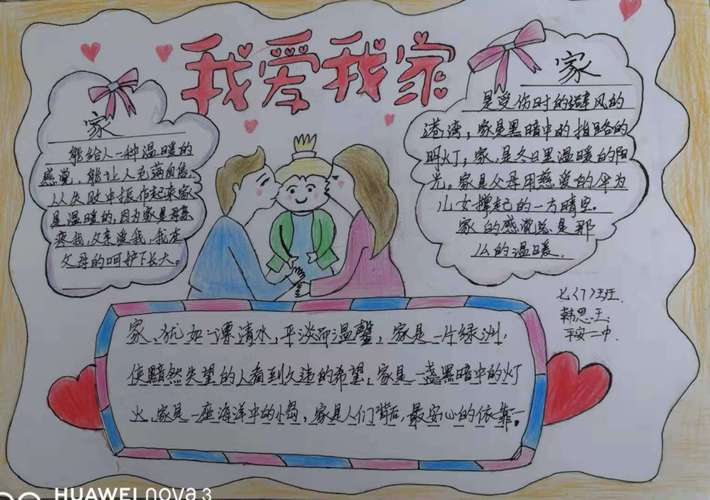 我爱我家
家
能给人一种温暖的
感觉,能让人充满自信
从失败中振作起来家
是温暖的,因为家是母亲
疼我,父亲爱我,我在
父母的呵护下长大。
家
是受伤时的避风的
港湾,家是黑暗中的指路的
明灯,家,是冬日里温暖的阳
光,家是父母用慈爱的伞为
儿女撑起的一方晴空。
家的感觉总是那
么的温暖。
七〈7〉班
韩思
平安一中.
家、犹如一潭清水,平淡而温馨,家是一片绿洲,
使黯然失望的人看到久违的希望,家是一盏黑暗中的灯
火,家是一座海洋中的小岛,家是人们背后,最安心的依靠
HUAWEI nova 3